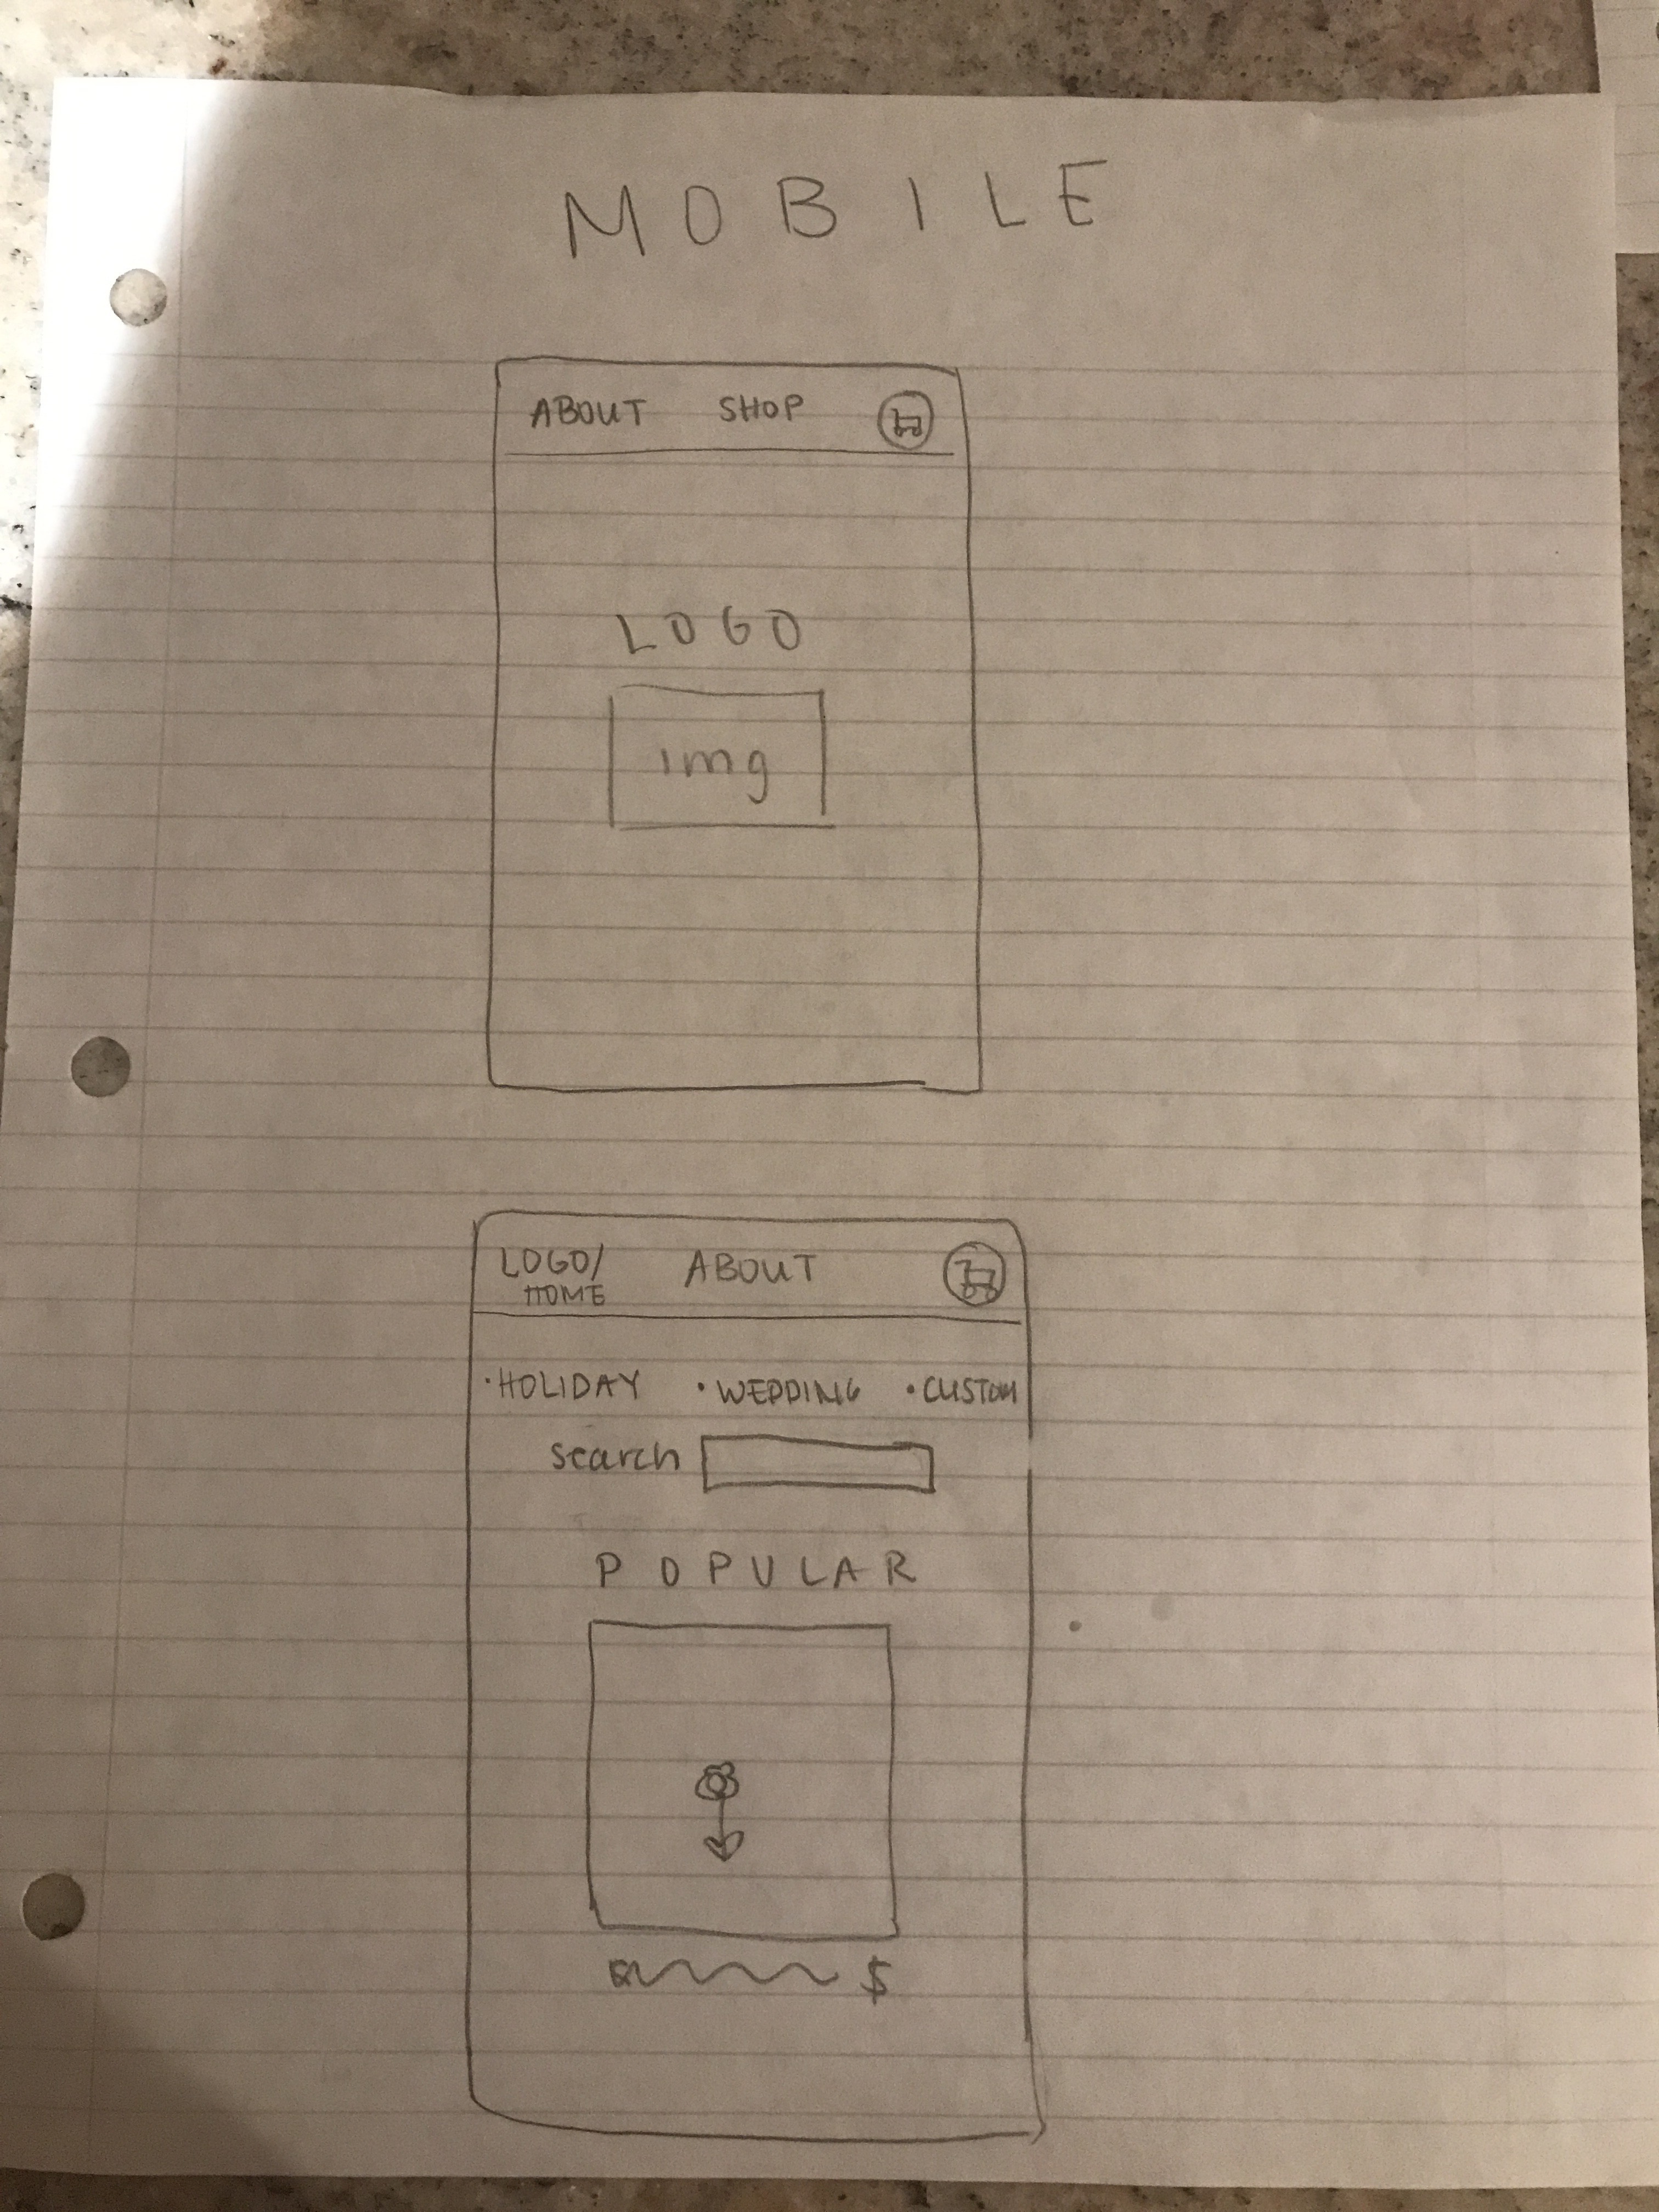 MOBILE
ABOUT SHOP
LOGO
img
LOGO/ ABOUT
HOME
·HOLIDAY ·WEDDING ·CUSTOM
search
POPULAR
$